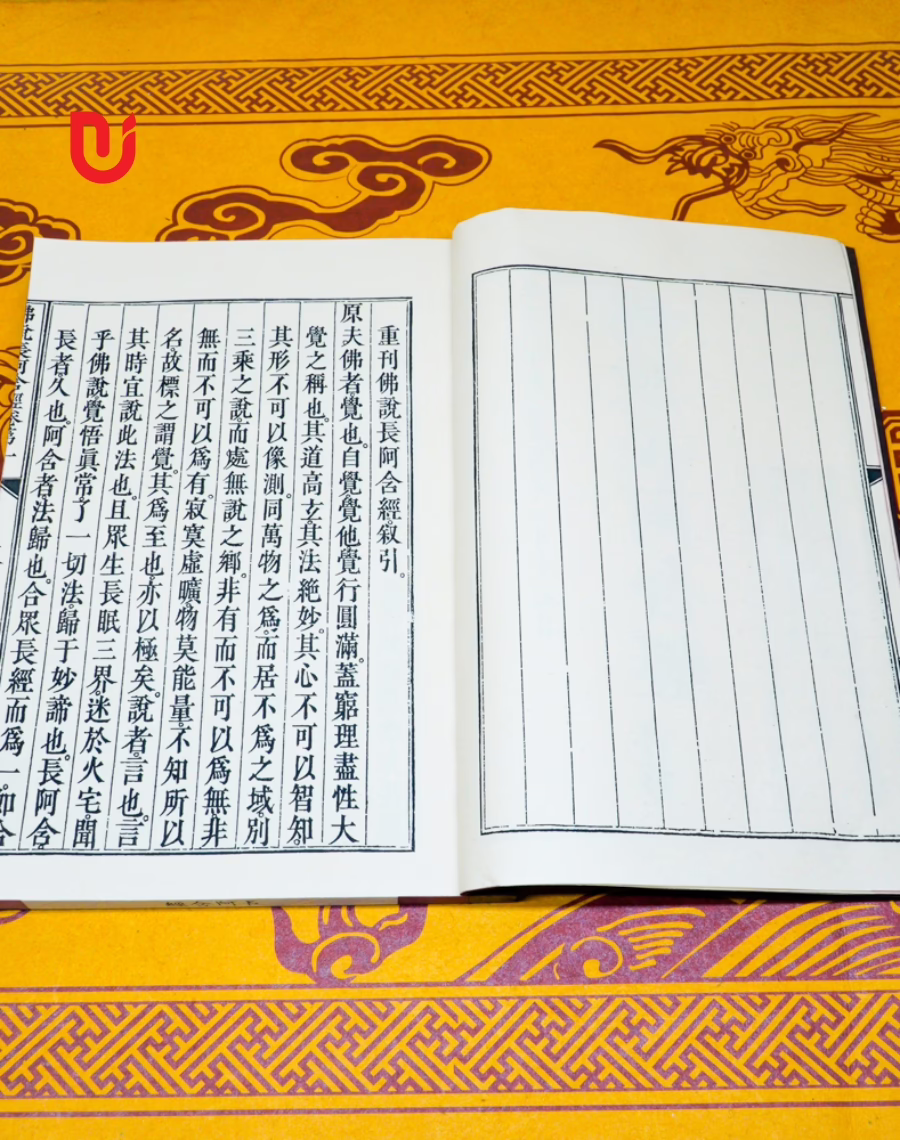 重刊佛說長阿含經敘引。
原夫佛者覺也。自覺覺他覺行圓滿。蓋窮理盡性大
覺之稱也。其道高玄。其法絕妙。其心不可以智知。
其形不可以像測。同萬物之爲。而居不爲之域。別
三乘之說。而處無說之鄉。非有而不可以爲無。非
無而不可以爲有。寂寞虛曠。物莫能量。不知所以
名。故標之謂覺。其爲至也。亦以極矣。說者。言也。言
其時宜說此法也。且眾生長眠三界。迷於火宅。聞
乎佛說覺悟眞常。了一切法。歸于妙諦也。長阿含。
長者。久也。阿含者。法歸也。合眾長經而爲一。如
佛說長阿含經